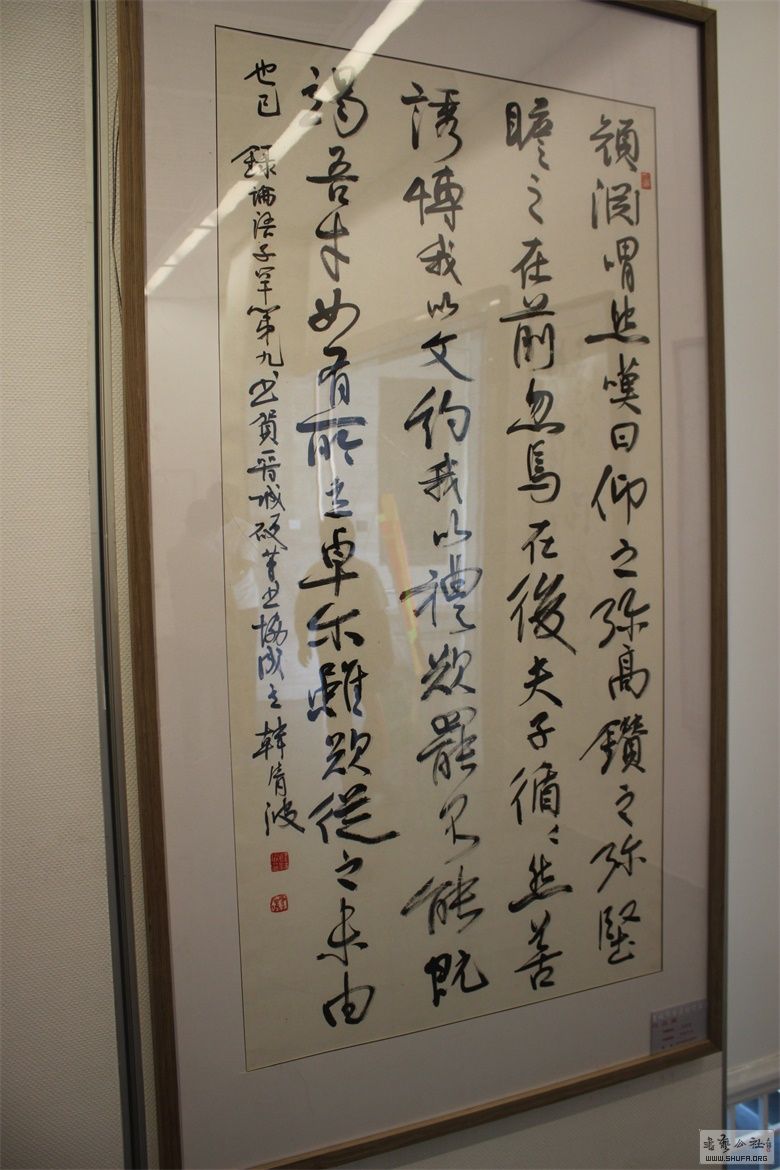 顏淵喟然嘆曰仰之弥高鑽之弥堅
瞻之在前忽焉在後夫子循〻然善
誘博我以文約我以禮欲罷不能既
竭吾才如有所立卓尔雖欲從之末由
也已 錄論語子罕第九书賀晉城硬筆书協成立 韓清波
書藝公社
WWW.SHUFA.ORG